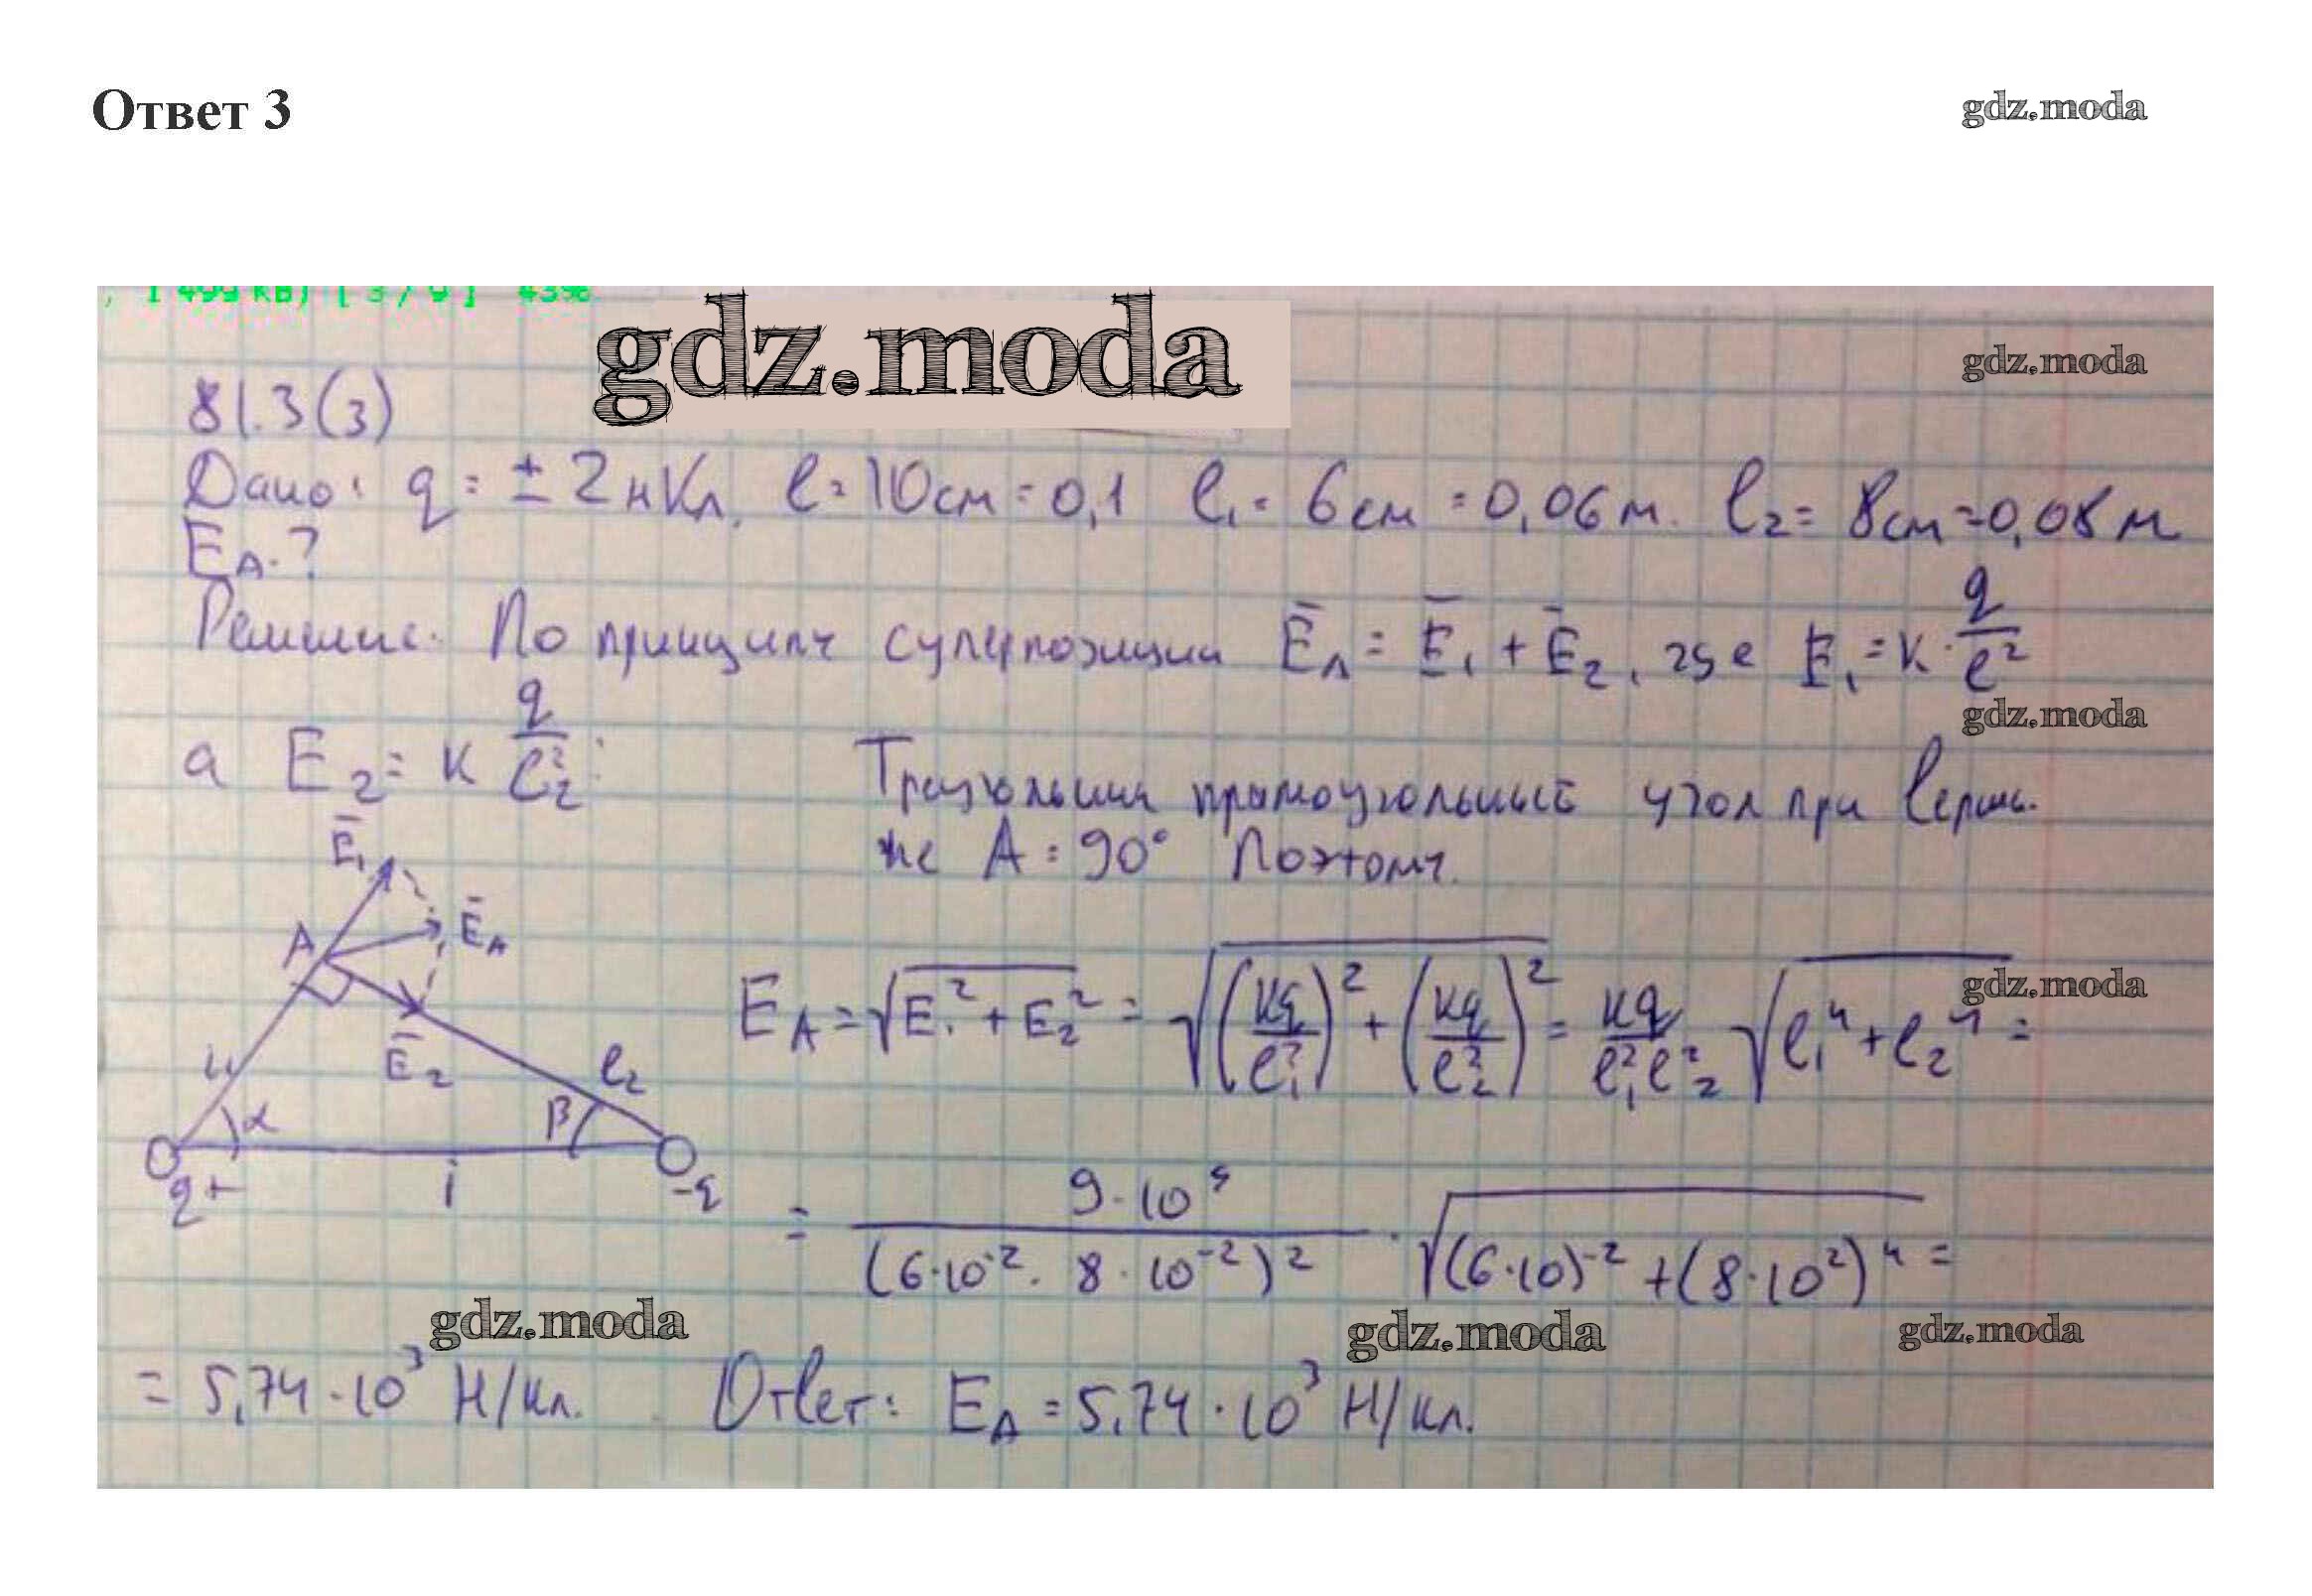 Ответ 3
gdz.moda
, 1 499 KB) [ 3 / 9 ] 43%
gdz.moda
gdz.moda
81.3(3)
Дано: q = ± 2 нКл, l = 10 см = 0,1 l₁ = 6 см = 0,06 м. l₂ = 8 см = 0,08 м
E_A - ?
Решение. По принципу суперпозиции E̅_A = E̅₁ + E̅₂, где E₁ = k · q/l²
gdz.moda
а E₂ = k q/l₂²
Треугольник прямоугольный угол при верши-
не A = 90° Поэтому.
E̅₁
A
E̅_A
E̅₂
l₂
α
β
q+
-q
E_A = √(E₁² + E₂²) = √((kq/l₁²)² + (kq/l₂²)²) = kq/(l₁² l₂²) √(l₁⁴ + l₂⁴) =
gdz.moda
= 9·10⁹/(6·10⁻² · 8·10⁻²)² · √((6·10)⁻² + (8·10²)⁴) =
gdz.moda
gdz.moda
gdz.moda
= 5,74·10³ Н/Кл. Ответ: E_A = 5,74·10³ Н/Кл.